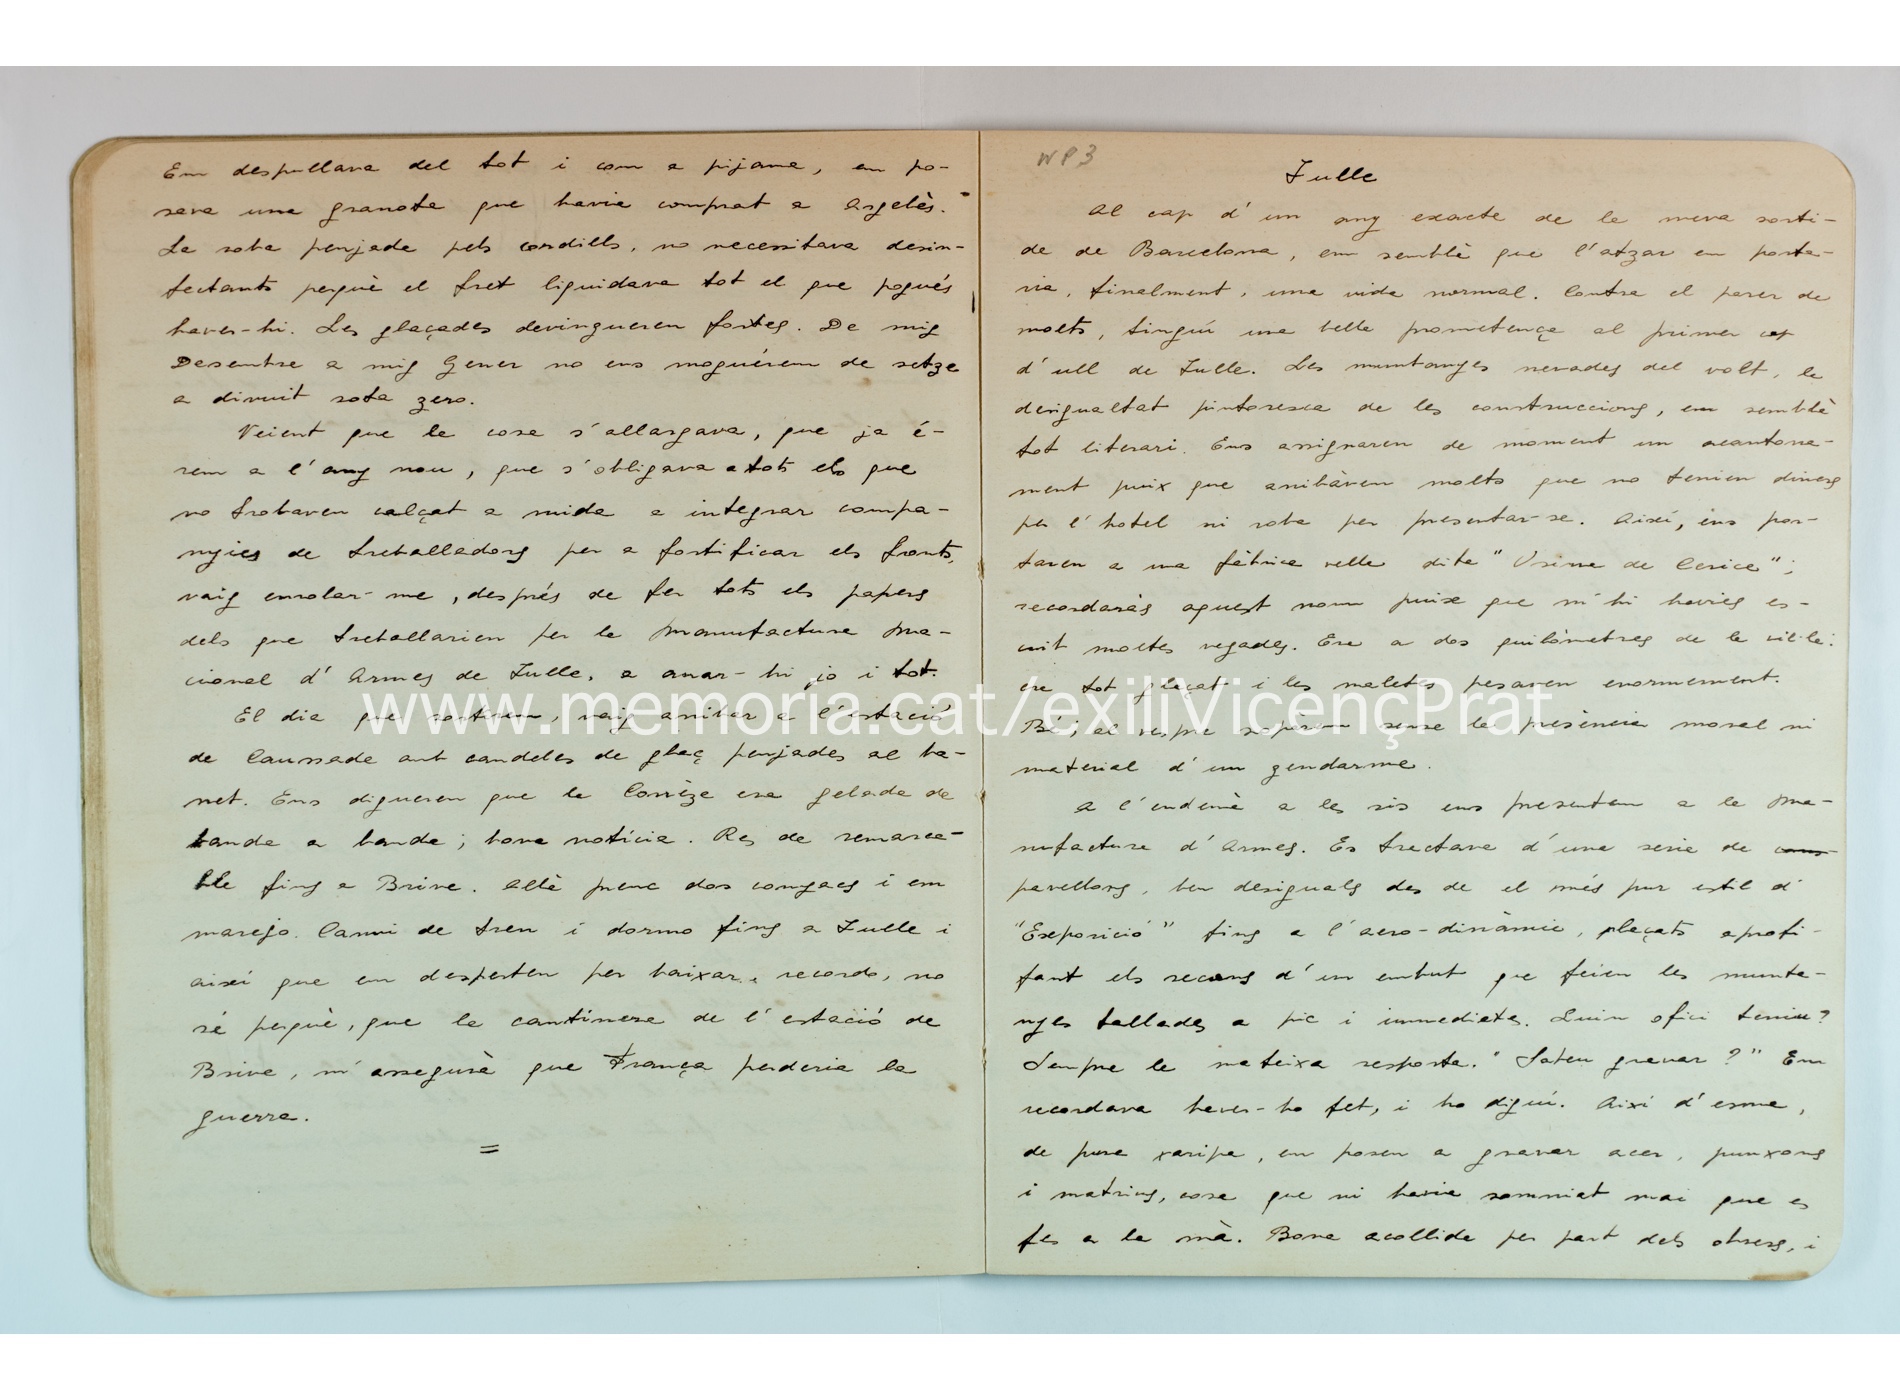 Em despullava del tot i com a pijama, em po-
sava una granota que havia comprat a Argelès.
La roba penjada pels cordills, no necessitava desin-
fectants perquè el fret liquidava tot el que pogués
haver-hi. Les glaçades devingueren fortes. De mig
Desembre a mig Gener no ens moguérem de setze
a divuit sota zero.
Veient que la cosa s'allargava, que ja é-
rem a l'any nou, que s'obligava a tots els que
no trobaven calçat a mida a integrar compa-
nyies de treballadors per a fortificar els fronts,
vaig enrolar-me, després de fer tots els papers
dels que treballarien per la Manufactura Na-
cional d'Armes de Tulle, a anar-hi jo i tot.
El dia que sortírem, vaig arribar a l'estació
de Caussade amb candeles de glaç penjades al ba-
rret. Ens digueren que la Corrèze era gelada de
banda a banda; bona notícia. Res de remarca-
ble fins a Brive. Allà prenc dos conyacs i em
marejo. Canvi de tren i dormo fins a Tulle i
així que em desperten per baixar, recordo, no
sé perquè, que la cantinera de l'estació de
Brive, m'assegurà que França perderia la
guerra.
=
WP3
Tulle
Al cap d'un any exacte de la meva sorti-
da de Barcelona, em semblà que l'atzar em porta-
ria, finalment, una vida normal. Contra el parer de
molts, tinguí una bella prometença al primer cop
d'ull de Tulle. Les muntanyes nevades del volt, la
desigualtat pintoresca de les construccions, em semblà
tot literari. Ens assignaren de moment un acantona-
ment puix que arribàvem molts que no tenien diners
per l'hotel ni roba per presentar-se. Així, ens por-
taren a una fàbrica vella dita "Usine de Cerice";
recordaràs aquest nom puix que m'hi havies es-
crit moltes vegades. Era a dos quilòmetres de la vil·la:
era tot glaçat i les maletes pesaven enormement.
Bé; al vespre sopàrem sense la presència moral ni
material d'un gendarme.
A l'endemà a les sis ens presentem a la Ma-
nufactura d'Armes. Es tractava d'una sèrie de
pavellons, ben desiguals des de el més pur estil d'
"Exposició" fins a l'aero-dinàmic, plaçats aprofi-
tant els recons d'un embut que feien les munta-
nyes tallades a pic i immediates. Quin ofici teniu?
Sempre la mateixa resposta. "Sabeu gravar?" Em
recordava haver-ho fet, i ho diguí. Així d'esma,
de pura xaripa, em posen a gravar acer, punxons
i matrius, cosa que ni havia somniat mai que es
fes a la mà. Bona acollida per part dels obrers, i
www.memoria.cat/exiliVicençPrat